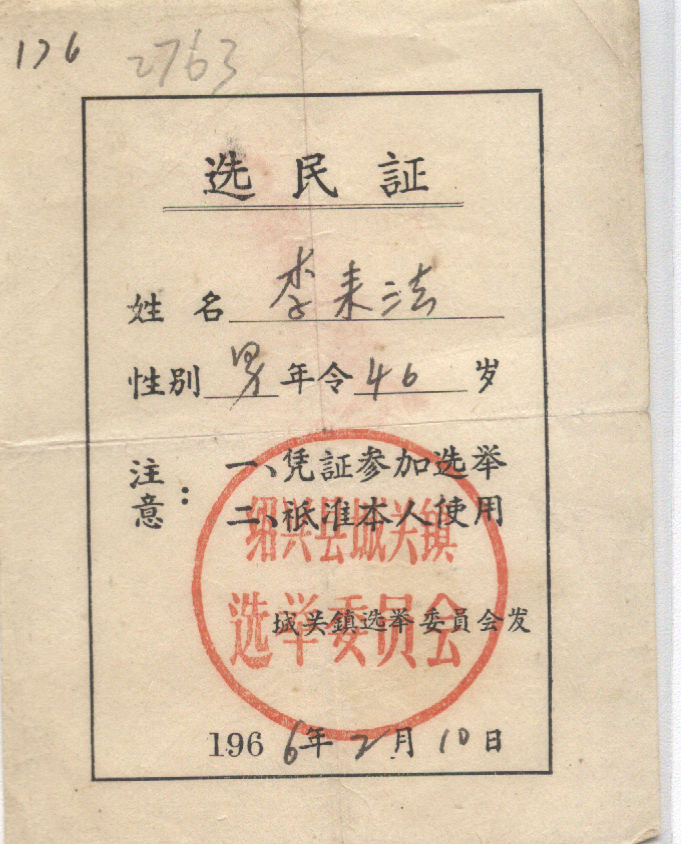 176 2763
选民証
姓名 李来法
性别 男 年令 46 岁
注意：
一、凭証参加选举
二、祇准本人使用
绍兴县城关镇
选举委员会
城关鎮选举委員会发
1966年2月10日